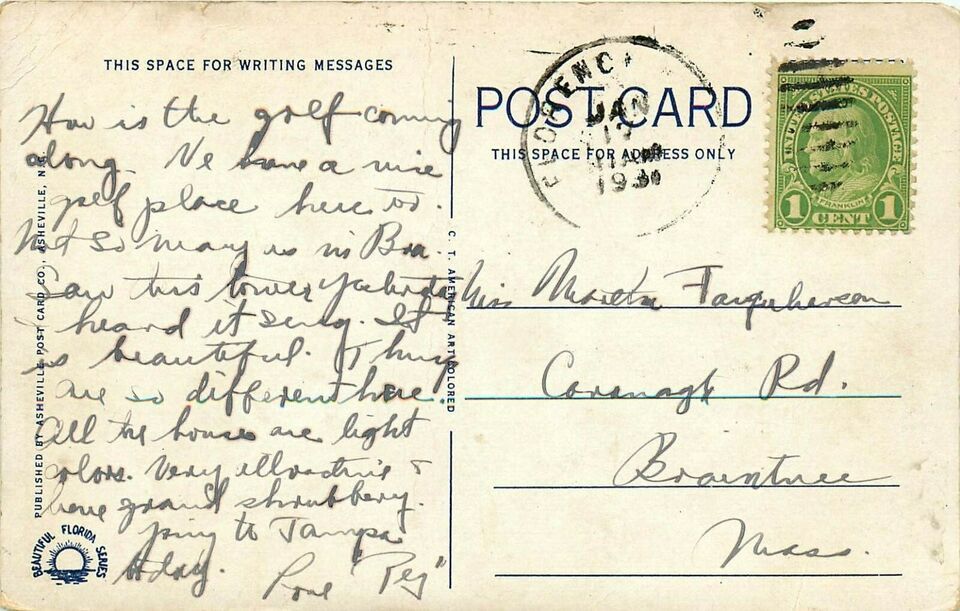 THIS SPACE FOR WRITING MESSAGES
How is the golf coming
along. We have a nice
golf place here too.
Not so many as in Bra
Saw this tower yesterday
heard it sing. It
is beautiful. Things
are so different here.
All the houses are light
colors. Very attractive &
have grand shrubbery.
Going to Tampa
today.
Love "Peg"
PUBLISHED BY ASHEVILLE POST CARD CO., ASHEVILLE, N.C.
BEAUTIFUL FLORIDA SERIES
C. T. AMERICAN ART COLORED
POST CARD
THIS SPACE FOR ADDRESS ONLY
JAN
193
UNITED STATES POSTAGE
FRANKLIN
1 CENT 1
Miss Martha Farquharson
Cavanagh Rd.
Braintree
Mass.